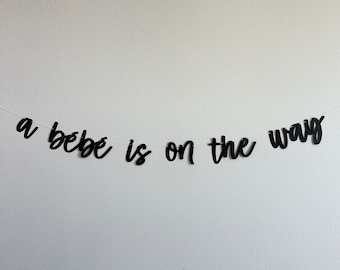 a bébé is on the way